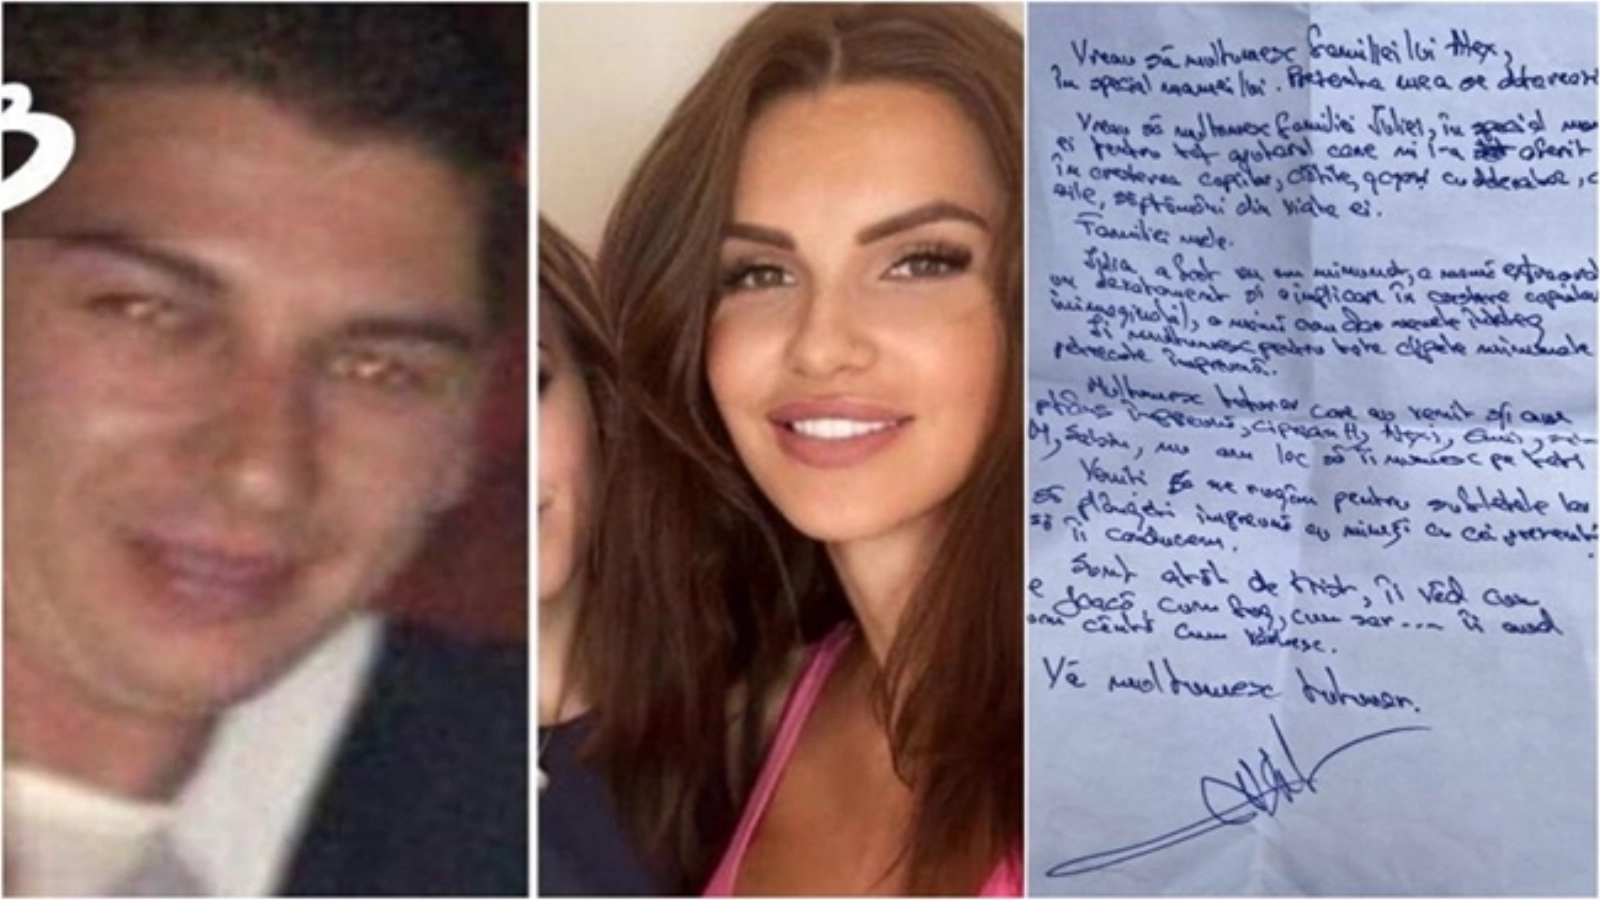 B
Vreau să multumesc familiei lui Alex,
în special mamei lui. Prezenta mea se datorează
Vreau să multumesc familiei Iuliei, în special
ei pentru tot ajutorul care mi l-a oferit
în cresterea copiilor,
zile, săptămâni din viata ei.
Familiei mele.
Iulia a fost un om minunat, o mamă
un devotament si o implicare în crestere copiilor
inimaginabil, o mamă cum doar mamele înteleg
Îi multumesc pentru toate clipele minunate
petrecute împreună.
Multumesc tuturor care au venit si au
plâns împreună, Ciprian H, Alexi,
M, Sabin, nu am loc să îi numesc pe toti
Veniti să ne rugăm pentru sufletele lor
să plângeti împreună cu mine si cu cei prezenti
să îi conducem.
Sunt atât de trist, îi văd cum
se joacă, cum fug, cum sar... îi aud
cum cântă cum vorbesc.
Vă multumesc tuturor.